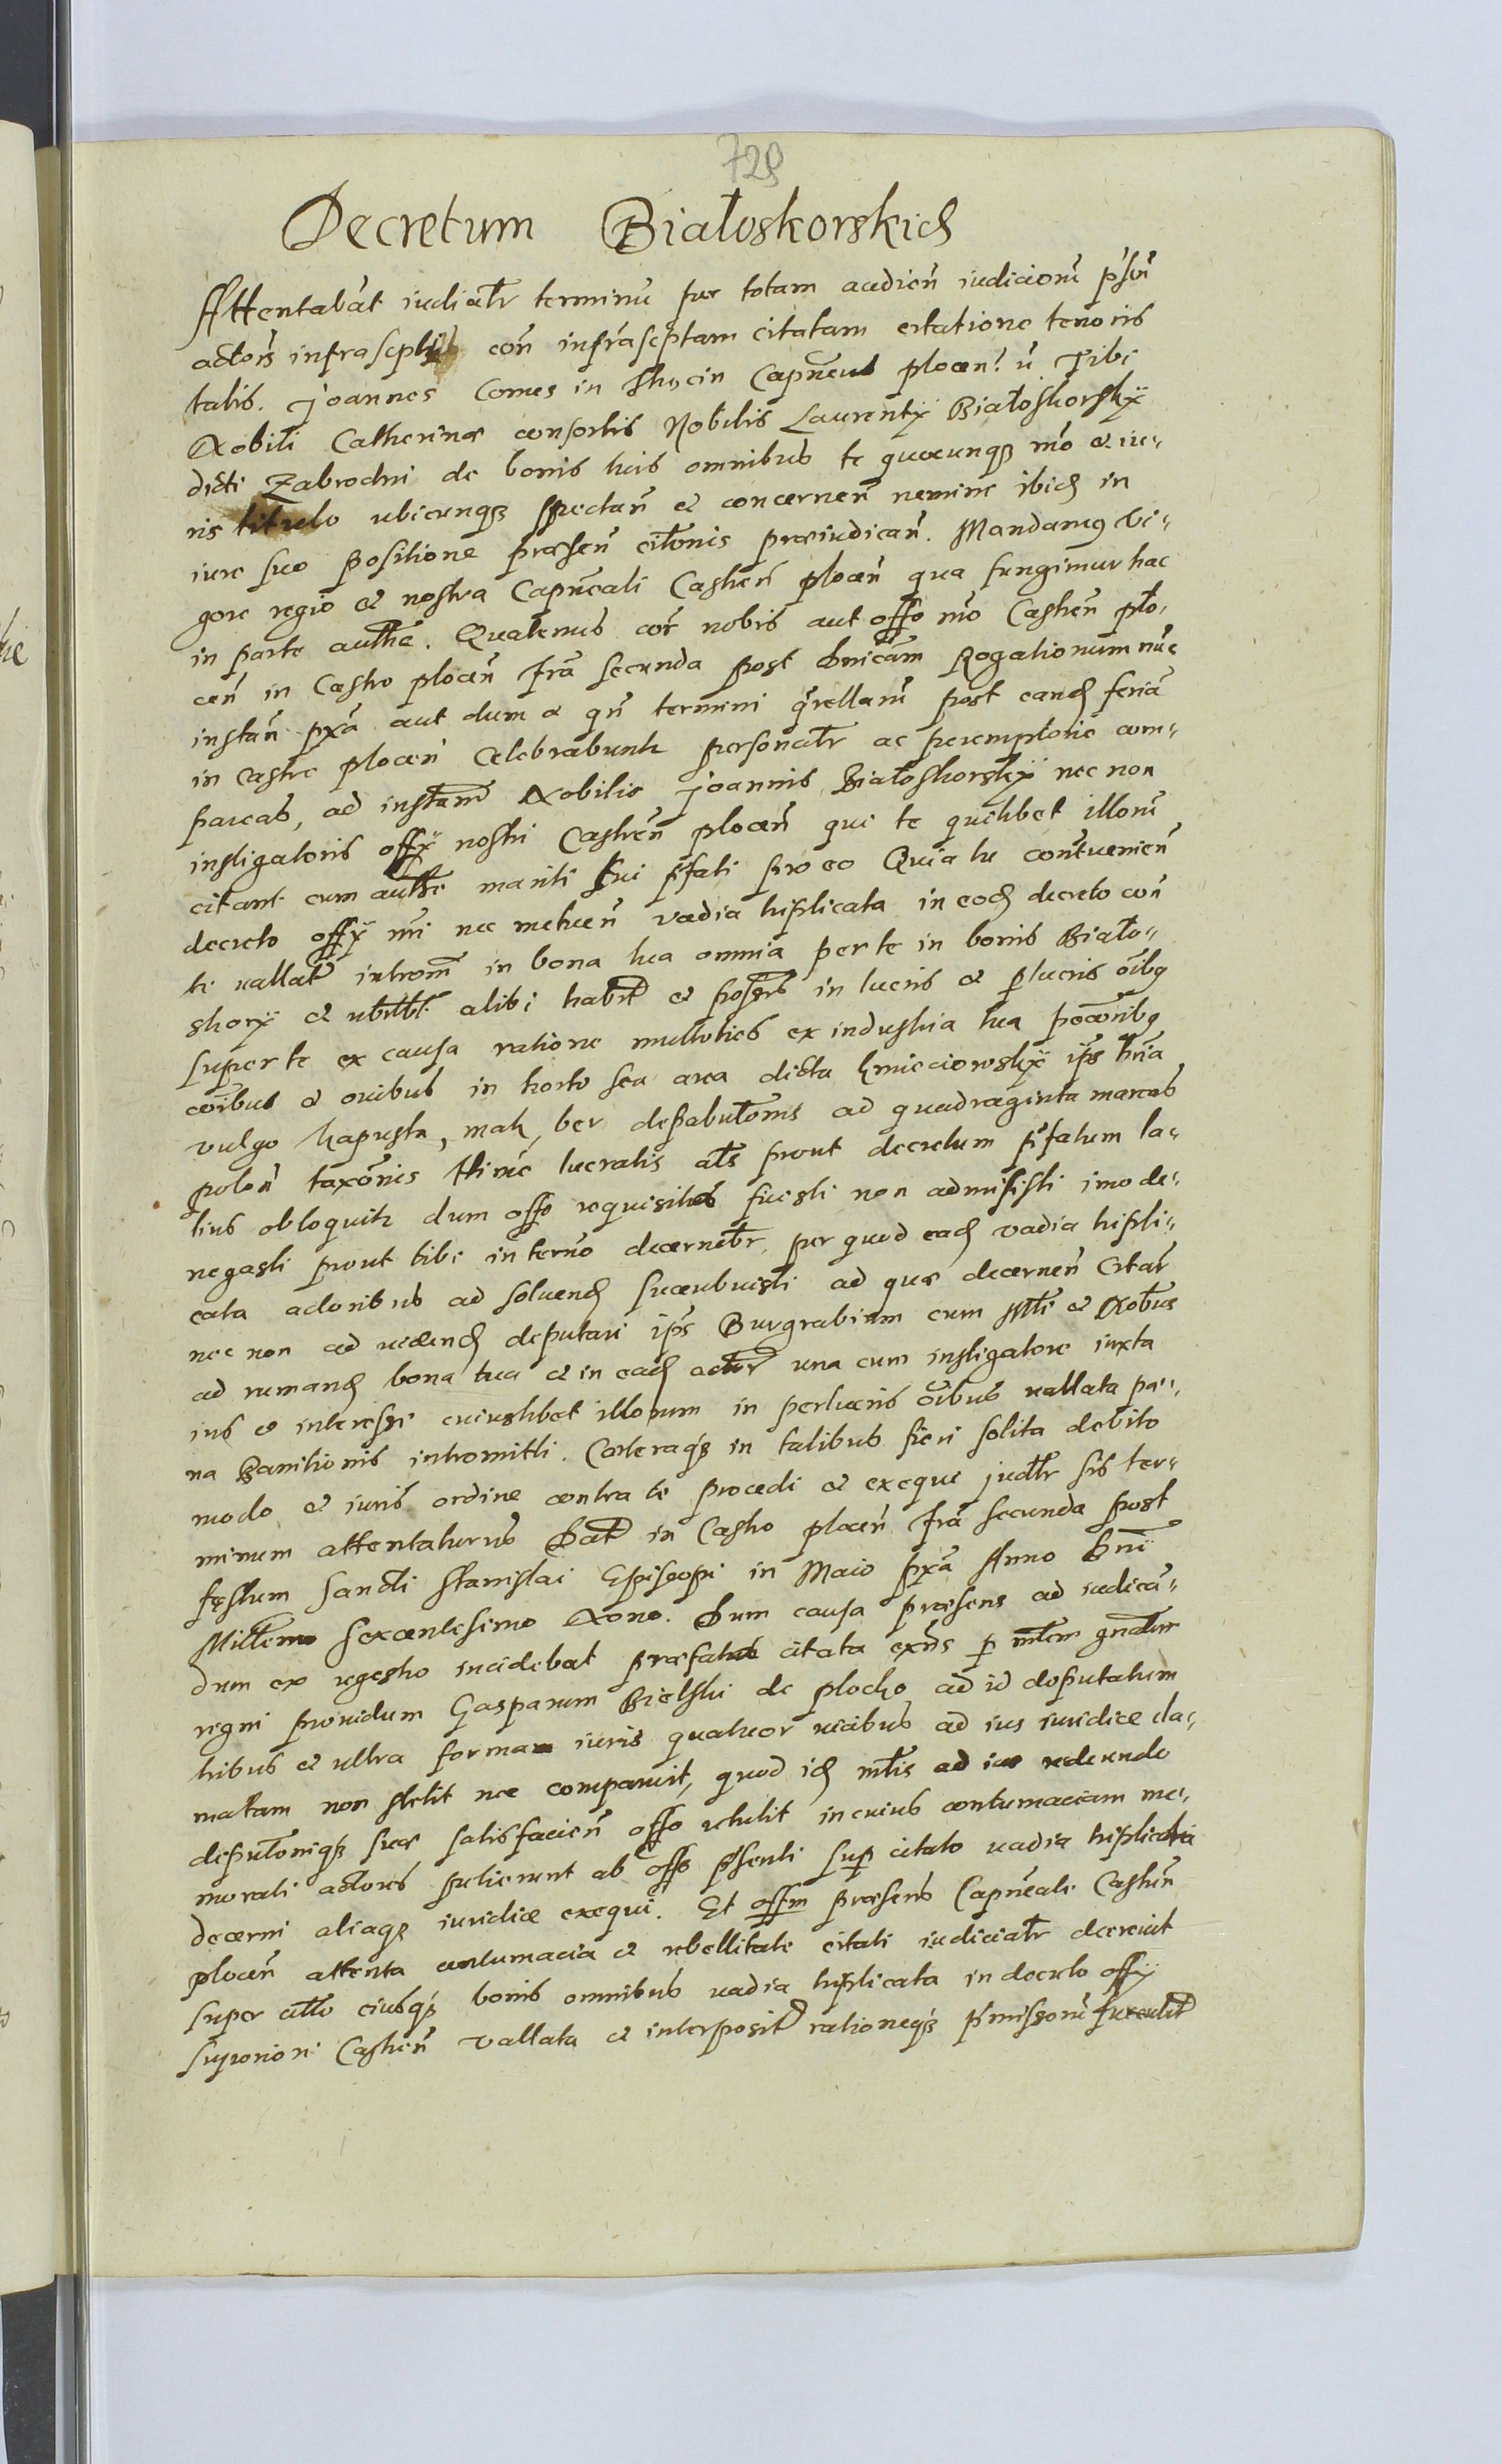 729
Decretum Białoskorskich
Attentabat iudicialr terminu per totam audien iudicioru psen
actors infrascpti con infrascptam citatam citatione tenoris
talis. Joannes Comes in Capneus plocen. Tibi
Nobili Catherinæ consortis Nobilis Laurentÿ Białoskorskÿ
dicti Zabrochni de bonis tuis omnibus te quocunqz mo et iu-
ris titulo ubicunqz spectan et concernen nemine ibid in
iure suo positione præsen citonis præiudican. Mandamus vi-
gore regio et nostra Capneali Castren plocen qua fungimur hac
in parte authe. Quatenus cor nobis aut offo nro Castren plo-
cen in Castro plocen fra secunda post dnicam Rogationum nuc
instan pxa aut dum et qn termini qrellaru post eand feria
in Castro plocen celebrabuntr personalr ac peremptorie com-
pareas, ad instam Nobilis Joannis Białoskorskÿ nec non
instigatoris offÿ nostri Castren plocen qui te quilibet illoru
citant cum authe mariti tui pfati pro eo Quia tu contuenien
decreto offÿ nri nec metuen vadia triplicata in eod decreto con
te vallat introm in bona tua omnia per te in bonis Biało-
skory et ubilbt alibi habit et possess in lucris et plucris oibg
super te ex causa ratione multoties ex industria tua
et ovibus in horto seu area dicta Kmieciowskÿ ips
vulgo kapusta, mak, ber depabulonis ad quadraginta marcas
polon taxonis lucralis als prout decretum pfatum la-
tius obloquitr dum offo requisitus fuisti non admisisti imo de-
negasti prout tibi in terno decernetr, per quod ead vadia tripli-
cata actoribus ad soluend succubuisti ad quæ decernen Citar
nec non ad vidend deputari ips Burgrabium cum Mli et Nobus
ad rumand bona tua et in ead actor una cum instigatore iuxta
ius et interesse cuiuslibet illorum in perlucris oibus vallata pæ-
na Banitionis intromitti. Cæteraqz in talibus fieri solita debito
modo et iuris ordine contra te procedi et exequi judlr sis ter-
minum attentaturus Dat in Castro plocen fra secunda post
festum Sancti Stanislai Episcopi in Maio pxa Anno Dni
Millemo Sexcentesimo Nono. Dum causa præsens ad iudica-
dum ex regestro incidebat præfatus citata exns p mlem gnalem
regni prouidum Gasparum Bielski de plocko ad id deputatum
tribus et ultra formam iuris quatuor vicibus ad ius iuridice cla-
matam non stetit nec comparuit, quod id mlis ad ius redeundo
deputoniqz suæ satisfacien offo retulit in cuius contumaciam me-
morati actores petierunt ab offo psenti sup citato vadia triplicata
decerni aliaqz iuridice exequi. Et offm præsens Capneale Castren
plocen attenta contumacia et rebellitate citati iudicialr decreuit
super citto eiusqz bonis omnibus vadia triplicata in decreto offÿ
superiori Castren vallata et interposit rationeqz pmissoru succubit